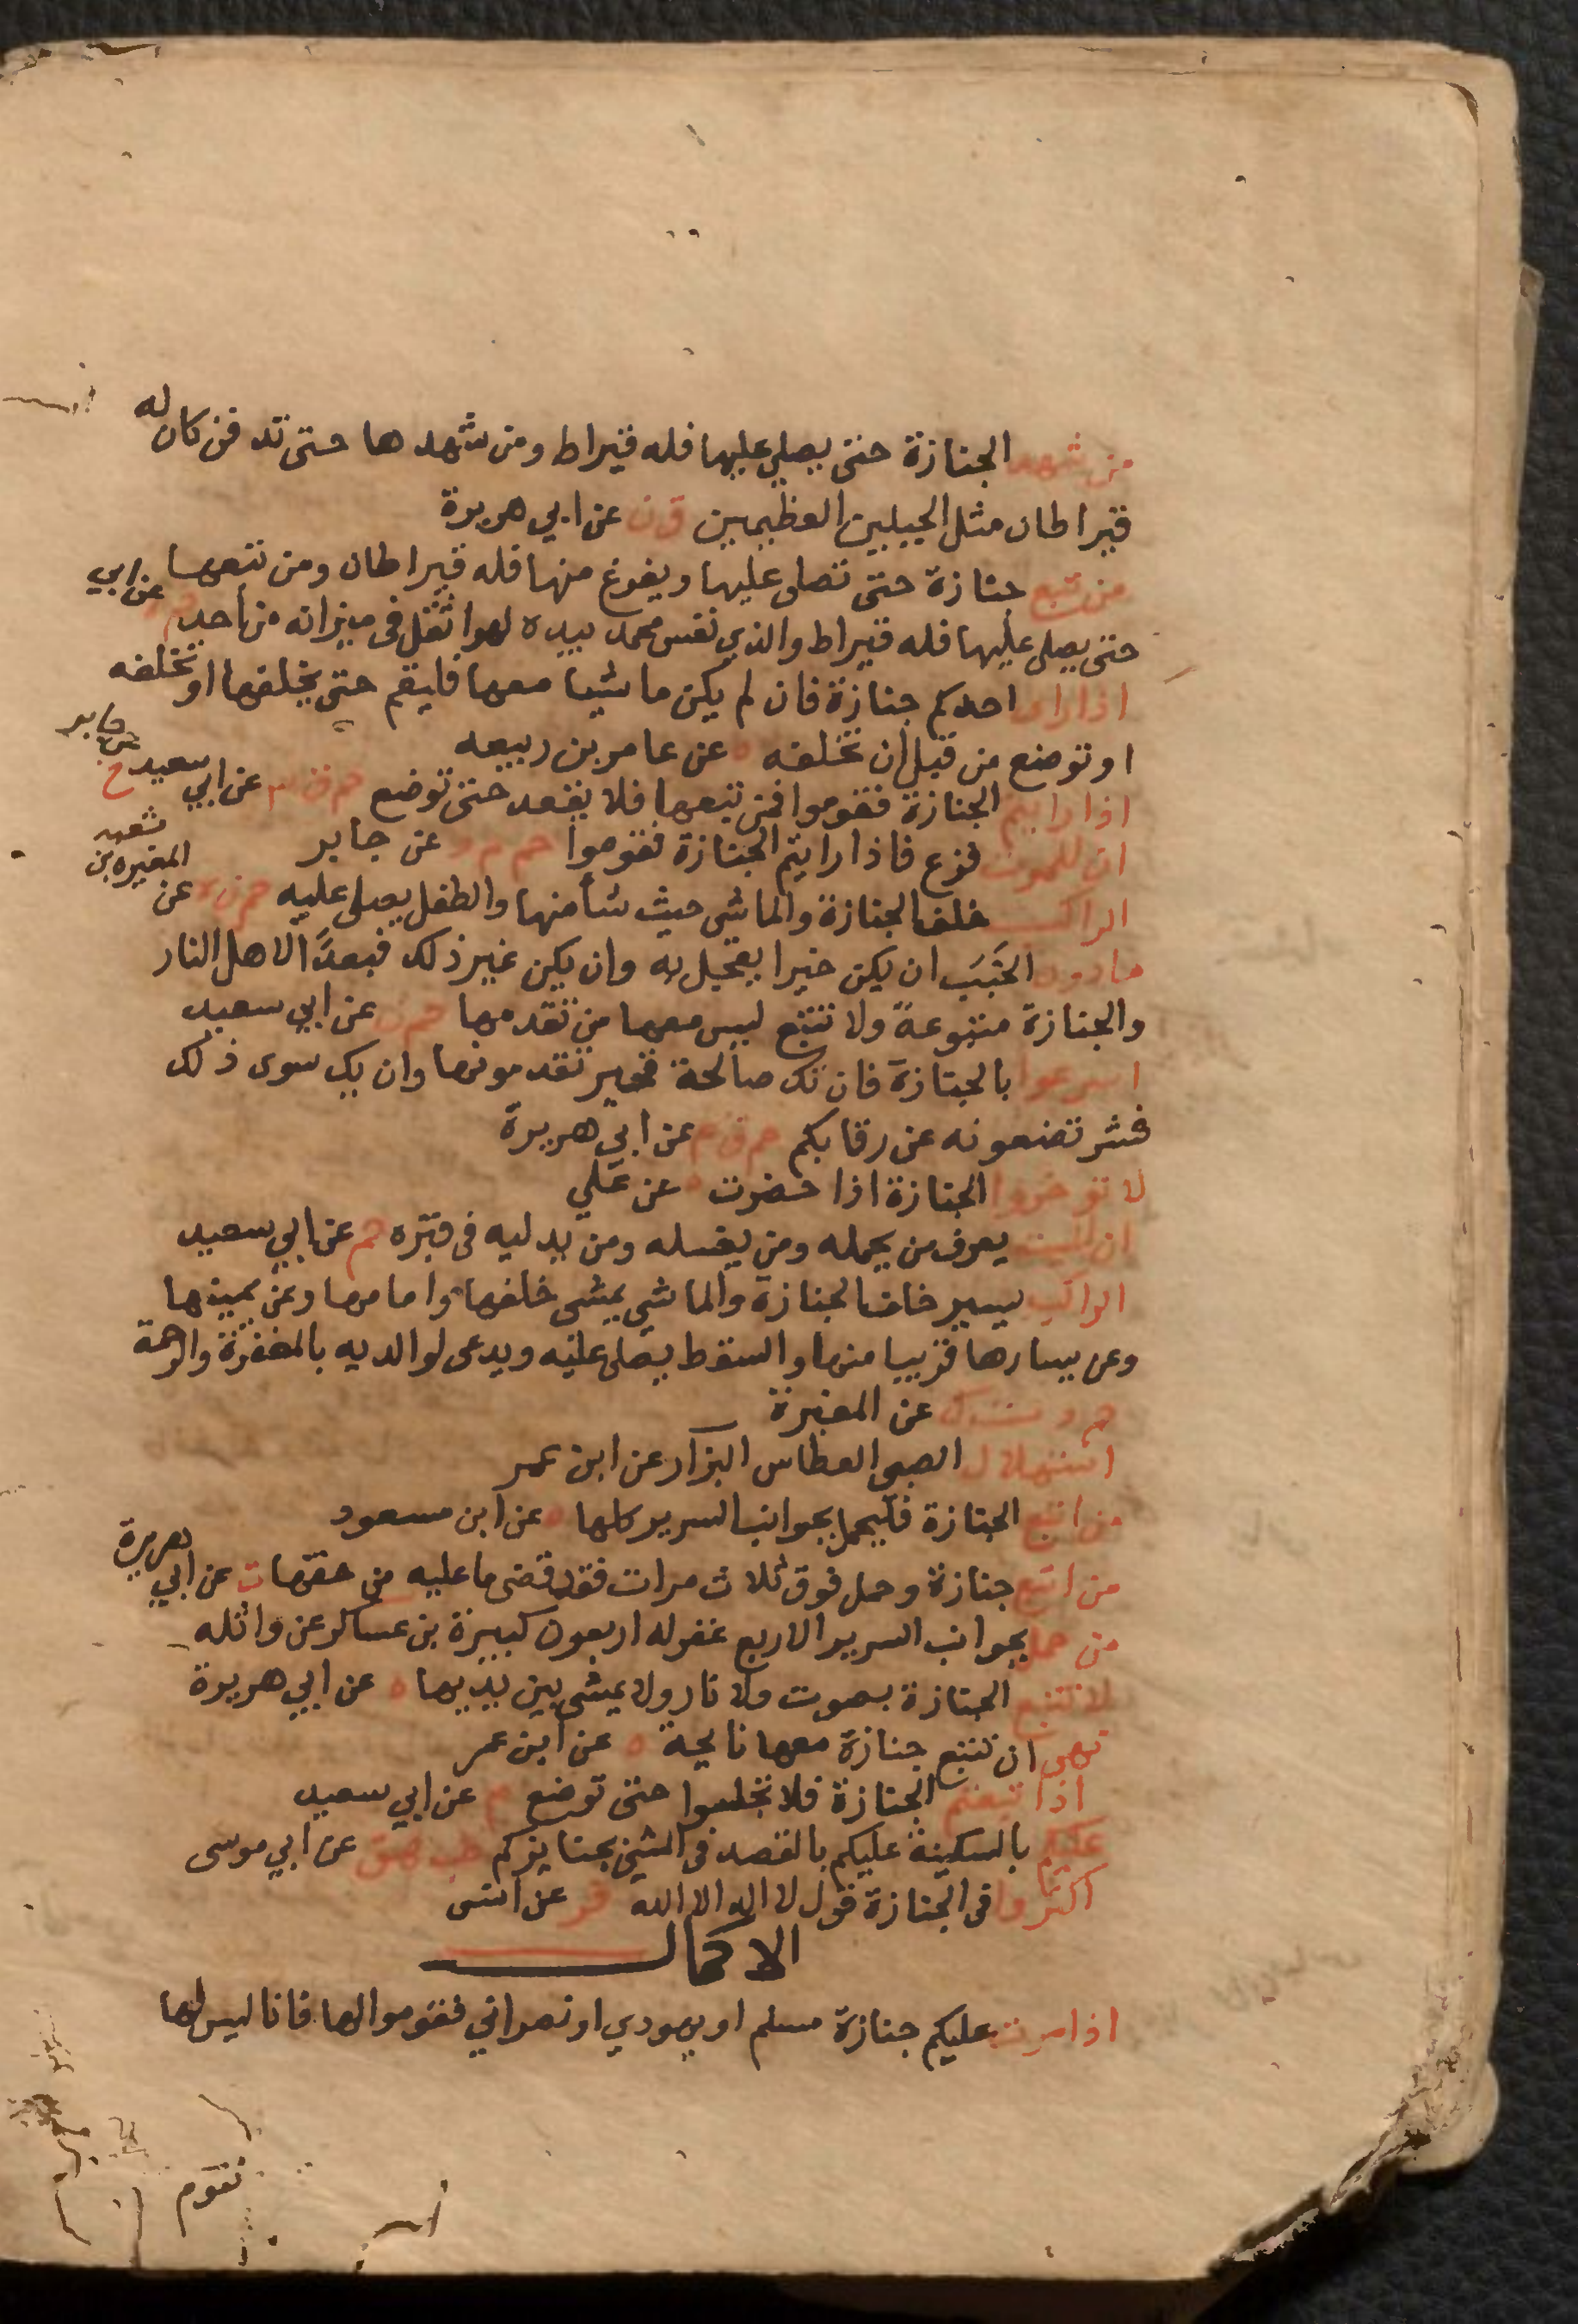 من شهد الجنازة حتى يصلي عليها فله قيراط ومن شهدها حتى تدفن كان له
قيراطان مثل الجبلين العظيمين ق ن عن ابي هريرة
من تبع جنازة حتى تصلى عليها ويفرغ منها فله قيراطان ومن تبعها
حتى يصلى عليها فله قيراط والذي نفس محمد بيده لهو اثقل في ميزانه من أحد عن ابي
اذا راى احدكم جنازة فان لم يكن ماشيا معها فليقم حتى يخلفها او تخلفه
او توضع من قبل ان تخلفه ه عن عامر بن ربيعه
اذا رايتم الجنازة فقوموا فمن تبعها فلا يقعد حتى توضع حم ق عن ابي سعيد خ عن جابر
ان للموت فزع فاذا رايتم الجنازة فقوموا حم م د عن جابر
الراكب خلف الجنازة والماشي حيث شأ منها والطفل يصلى عليه حم ن ه عن المغيره بن شعبه
ما دون الخَبَبَ ان يكن خيرا يعجل له وان يكن غير ذلك فبعدًا لاهل النار
والجنازة متبوعة ولا تتبع ليس معها من تقدمها حم ن عن ابي سعيد
اسرعوا بالجنازة فان تك صالحة فخير تقدمونها وان يك سوى ذلك
فشر تضعونه عن رقابكم حم ق عن ابي هريرة
لا توخروا الجنازة اذا حضرت ه عن علي
ان الميت يعرف من يحمله ومن يغسله ومن يدليه في قبره حم عن ابي سعيد
الراكب يسير خلف الجنازة والماشي يمشي خلفها وامامها وعن يمينها
وعن يسارها قريبا منها والسقط يصلى عليه ويدعى لوالديه بالمغفرة والرحمة
حم د ت ك عن المغيرة
استهلال الصبي العطاس البزار عن ابن عمر
من اتبع الجنازة فليحمل بجوانب السرير كلها ه عن ابن مسعود
من اتبع جنازة وحمل فوق ثلاث مرات فقد قضى ما عليه من حقها ت عن ابي هريرة
من حمل بجوانب السرير الاربع غفر له اربعون كبيرة بن عساكر عن واثله
لا تتبع الجنازة بصوت ولا نار ولا يمشي بين يديها ه عن ابي هريرة
نهى ان تتبع جنازة معها نايحة ه عن ابن عمر
اذا تبعتم الجنازة فلا تجلسوا حتى توضع م عن ابي سعيد
عليكم بالسكينة عليكم بالقصد في المشي بجنايزكم طب هق عن ابي موسى
اكثروا في الجنازة قول لا اله الا الله فر عن انس
الاكمال
اذا مرت عليكم جنازة مسلم او يهودي او نصراني فقوموا لها فانا ليس لها
نقوم